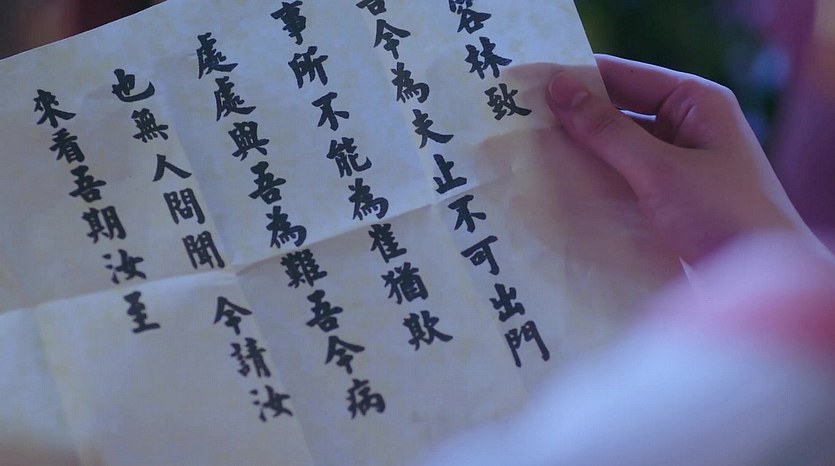 容林致
吾今為夫止不可出門
事所不能為崔猶欺
處處與吾為難吾今病
也無人問聞 今請汝
來看吾期汝至